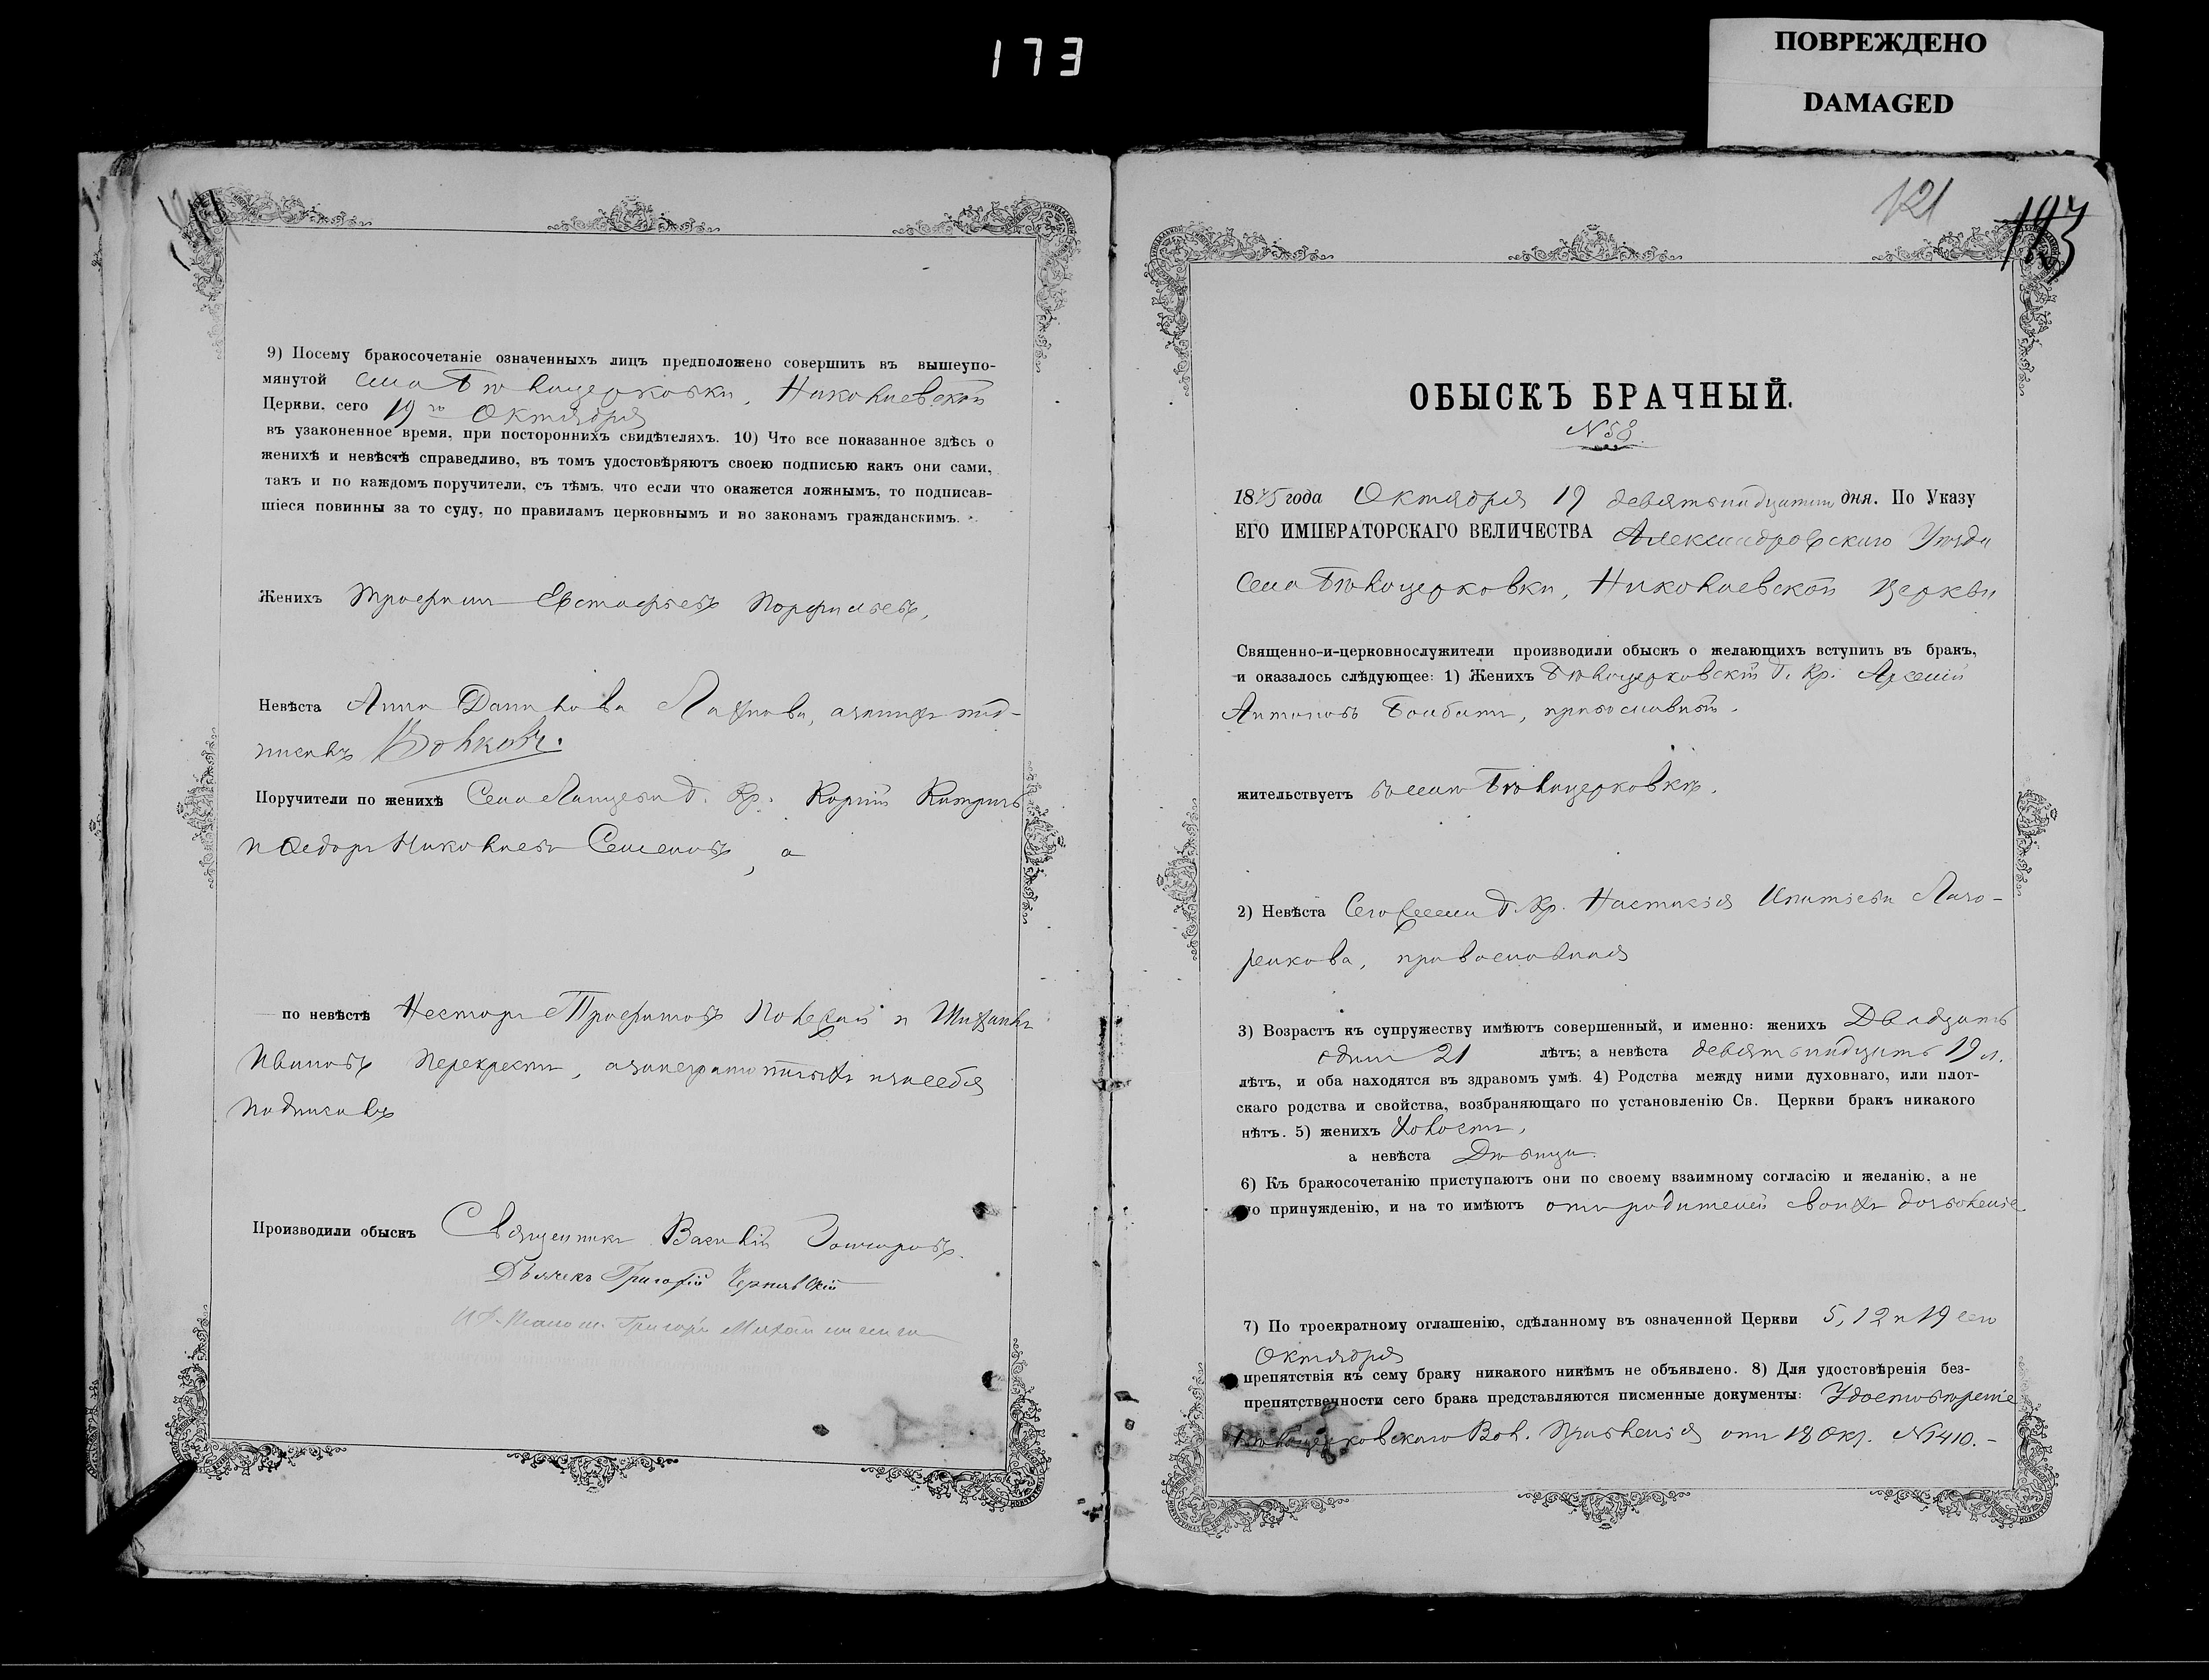 173
ПОВРЕЖДЕНО
DAMAGED
9) Посему бракосочетаніе означенныхъ лицъ предположено совершить въ вышеупо-
мянутой села Бѣлоцерковки, Николаевской
Церкви, сего 19го Октября
въ узаконенное время, при постороннихъ свидѣтеляхъ. 10) Что все показанное здѣсь о
женихѣ и невѣстѣ справедливо, въ томъ удостовѣряютъ своею подписью какъ они сами,
такъ и по каждомъ поручители, съ тѣмъ, что если что окажется ложнымъ, то подписав-
шіеся повинны за то суду, по правиламъ церковнымъ и по законамъ гражданскимъ.
Женихъ Трофимъ Евстафьевъ Порфильевъ,
Невѣста Анна Данилова Лахнова, а за нихъ под-
писалъ Волковъ.
Поручители по женихѣ Села г. Кр. Корній
и Федоръ Николаевъ Семеновъ, а
по невѣстѣ Несторъ Трофимовъ и Михаилъ
Ивановъ Перекрестъ, а за неграмотныхъ и за себя
подписалъ
Производили обыскъ Священникъ Василій
Дьячекъ Григорій Чернявскій
Григорій
121
ОБЫСКЪ БРАЧНЫЙ.
№ 58.
1875 года Октября 19 девятьнадцатаго дня. По Указу
ЕГО ИМПЕРАТОРСКАГО ВЕЛИЧЕСТВА Александровскаго Уѣзда
Села Бѣлоцерковки, Николаевской Церкви
Священно-и-церковнослужители производили обыскъ о желающихъ вступить въ бракъ,
и оказалось слѣдующее: 1) Женихъ Бѣлоцерковскій г. Кр. Арсеній
Антоновъ православный.
жительствуетъ въ селѣ Бѣлоцерковкѣ.
2) Невѣста Сего села г. Кр. Настасія Ипатіева Лазо-
ренкова, православная
3) Возрастъ къ супружеству имѣютъ совершенный, и именно: женихъ Двадцать
одинъ 21 лѣтъ; а невѣста девятьнадцать 19 л.
лѣтъ, и оба находятся въ здравомъ умѣ. 4) Родства между ними духовнаго, или плот-
скаго родства и свойства, возбраняющаго по установленію Св. Церкви бракъ никакого
нѣтъ. 5) женихъ Холостъ,
а невѣста Дѣвица.
6) Къ бракосочетанію приступаютъ они по своему взаимному согласію и желанію, а не
по принужденію, и на то имѣютъ отъ родителей своихъ дозволеніе
7) По троекратному оглашенію, сдѣланному въ означенной Церкви 5, 12 и 19 сего
Октября
препятствія къ сему браку никакого никѣмъ не объявлено. 8) Для удостовѣренія без-
препятственности сего брака представляются писменные документы: Удостовѣреніе
Бѣлоцерковскаго Вол. Правленія отъ 18 Окт. № 1410.